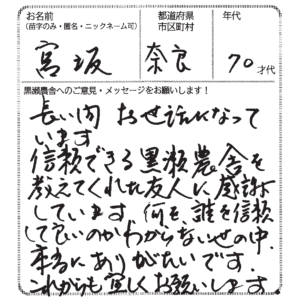 お名前
(苗字のみ・匿名・ニックネーム可)
都道府県
市区町村
年代
宮坂
奈良
70才代
黒瀬農舎へのご意見・メッセージをお願いします!
長い間 お世話になって
います
信頼できる黒瀬農舎を
教えてくれた友人に感謝
しています 何を、誰を信頼
して良いのかわからない世の中、
本当にありがたいです
これからも宜しくお願いします。